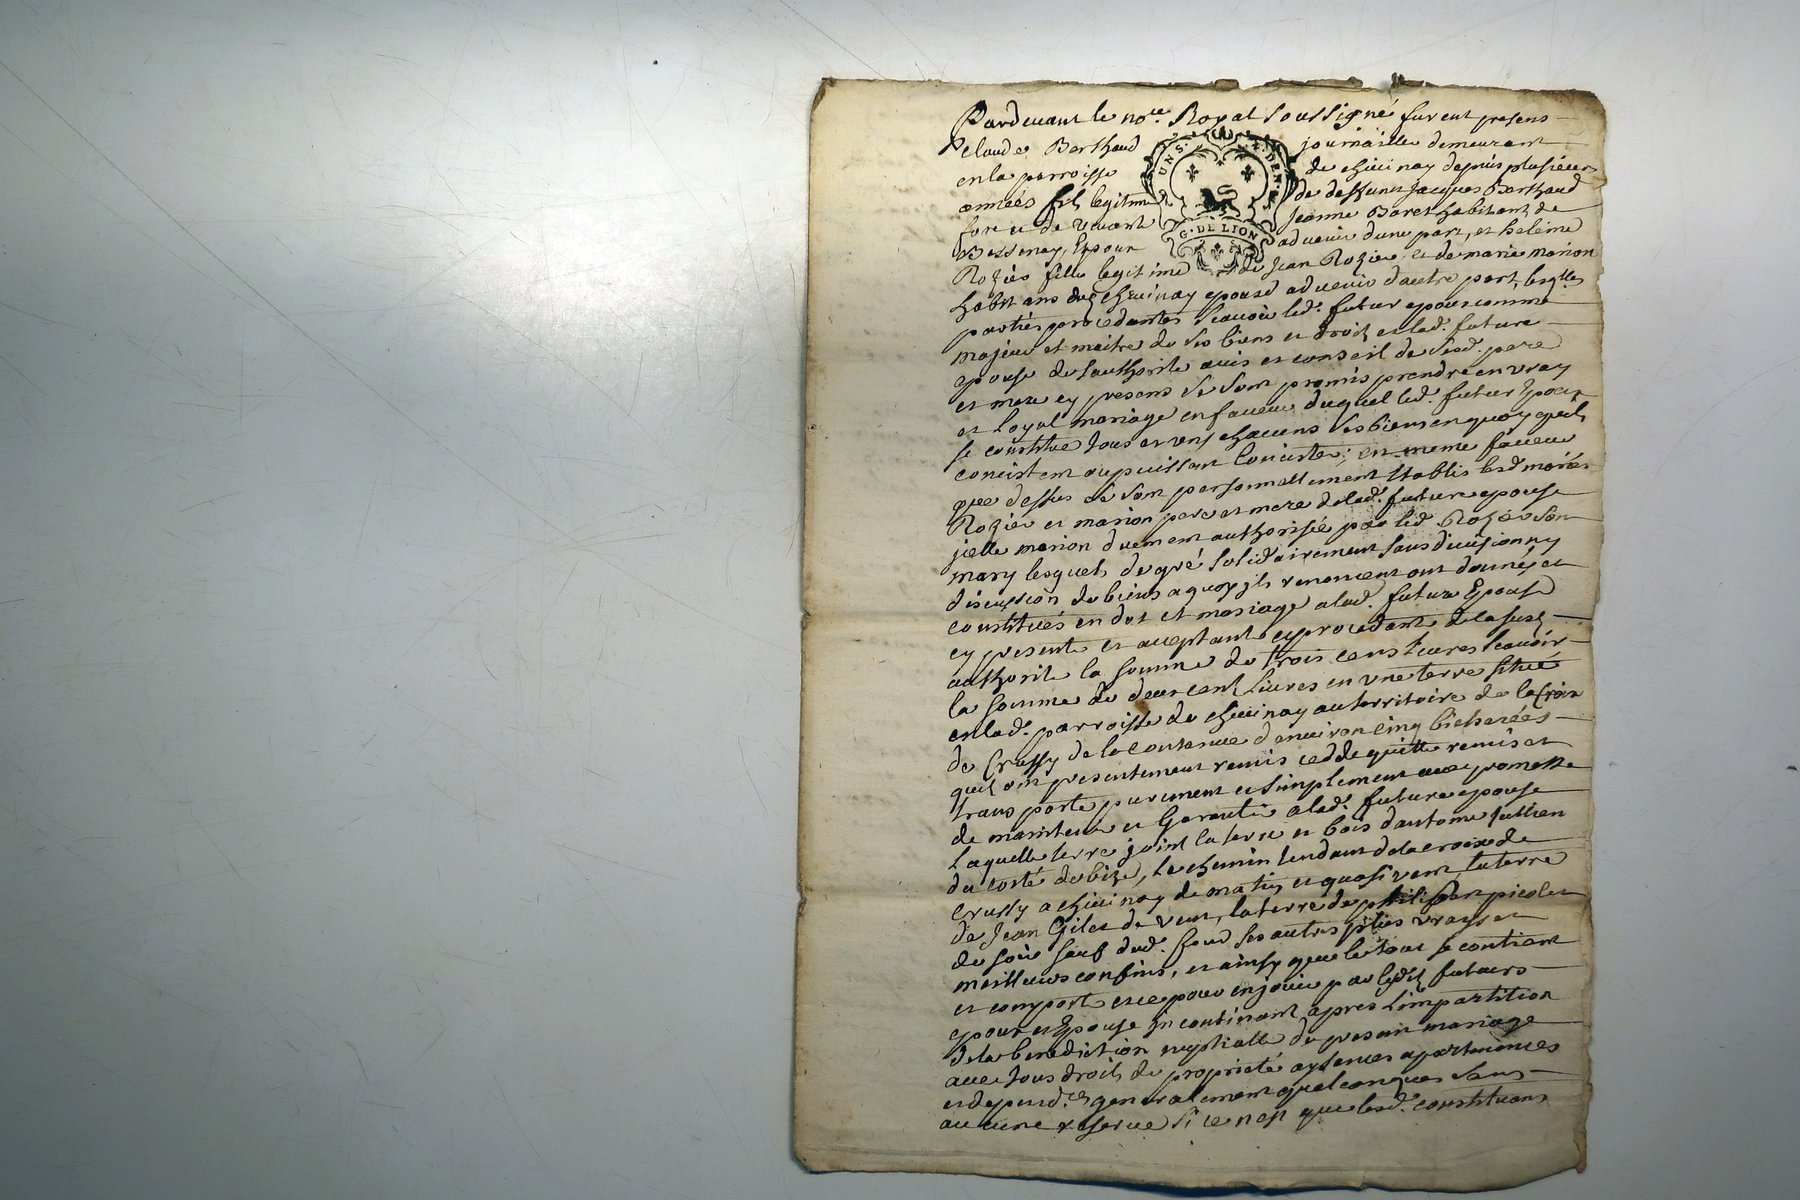 Pardevant le no.re Royal soussigné furent presens
UN S. 4. DEN.
claude Berthaud journailie demeurant
en la parroisse de chevinay depuis plusieurs
années fils legitime de deffunt jacques Berthaud
G. DE LION
jeanne Baret habitant de
Bessenay Epoux advenir dune part, et helême
Roziès fille legitime de Jean Rozier et de marie marion
habitans dud. chevinay epouse advenir dautre part, lesq.lles
parties procedantes scavoir led. futur epoux comme
majeur et maitre de ses biens et droits et lad. future
epouse de lauthorite avis et conseil de sesd. pere
et mere cy presens se sont promis prendre en vray
et loyal mariage en faveur duquel led. futur Epoux
se constitue tous et uns chacuns ses biens en quoy quils
concistent ou puissent conciste; en meme faveur
que dessus se sont personnellement Etablis lesd. mariés
Rozier et marion pere et mere de lad. future epouse
jcelle marion duement authorisée par led. Rozier son
mary lesquels de gré solidairement sans division ny
discussion de biens a quoy jls renoncent ont donnés et
constitués en dot et mariage a lad. future Epouse
cy presente et acceptante et procedant de la susd.
authorite la somme de trois cents livres scavoir
la somme de deux cent livres en une terre située
en lad. parroisse de chevinay au territoire de la Croix
de Crussy de la contenue denviron cinq bicherées
quils ont presentement remis cedde quitte remis et
transporte purement et simplement avec promesse
de maintenir et Garentir a lad. future epouse
Laquelle terre joint la terre et bois dantome jullien
du costé de bize, le chemin tendant de la croix de
Crussy a chevinay de matin et quasi vent, la terre
de Jean Gilet de vent, la terre de philippe picolet
de soir sauf dud. fond ses autres plus vrays et
meilleurs confins, et ainsy que le tout se contient
et comporte et ce pour en jouir par lesd. futurs
epoux et Epouse jncontinant apres Limpartition
de la benediction nuptialle du presant mariage
avec tous droits de proprieté aysences apartenances
et depend.ces generalement quelconques sans
aucune reserve si ce nest que lesd. constituans